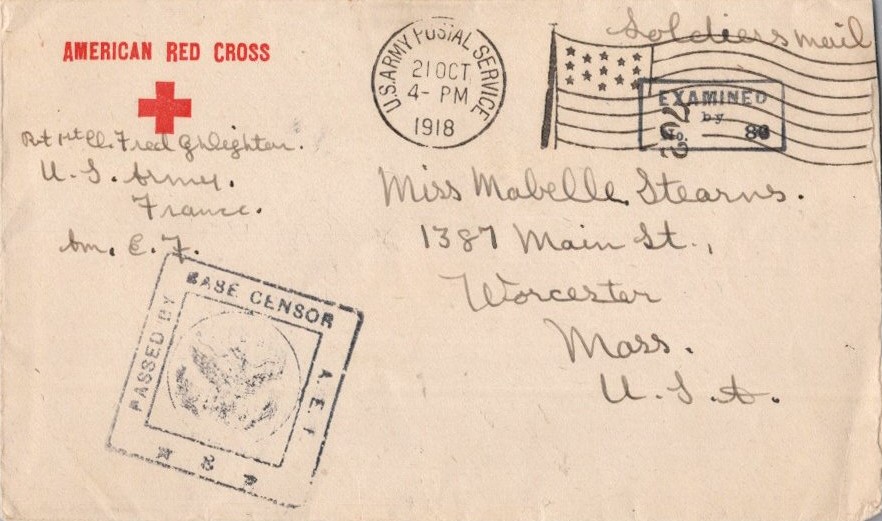 AMERICAN RED CROSS
U. S. Army.
France.
Am. E. F.
U.S. ARMY POSTAL SERVICE
21 OCT
4- PM
1918
Soldiers mail
EXAMINED
by
No. 80
Miss Mabelle Stearns.
1387 Main St.,
Worcester
Mass.
U. S. A.
PASSED BY
BASE CENSOR
A.E.F.